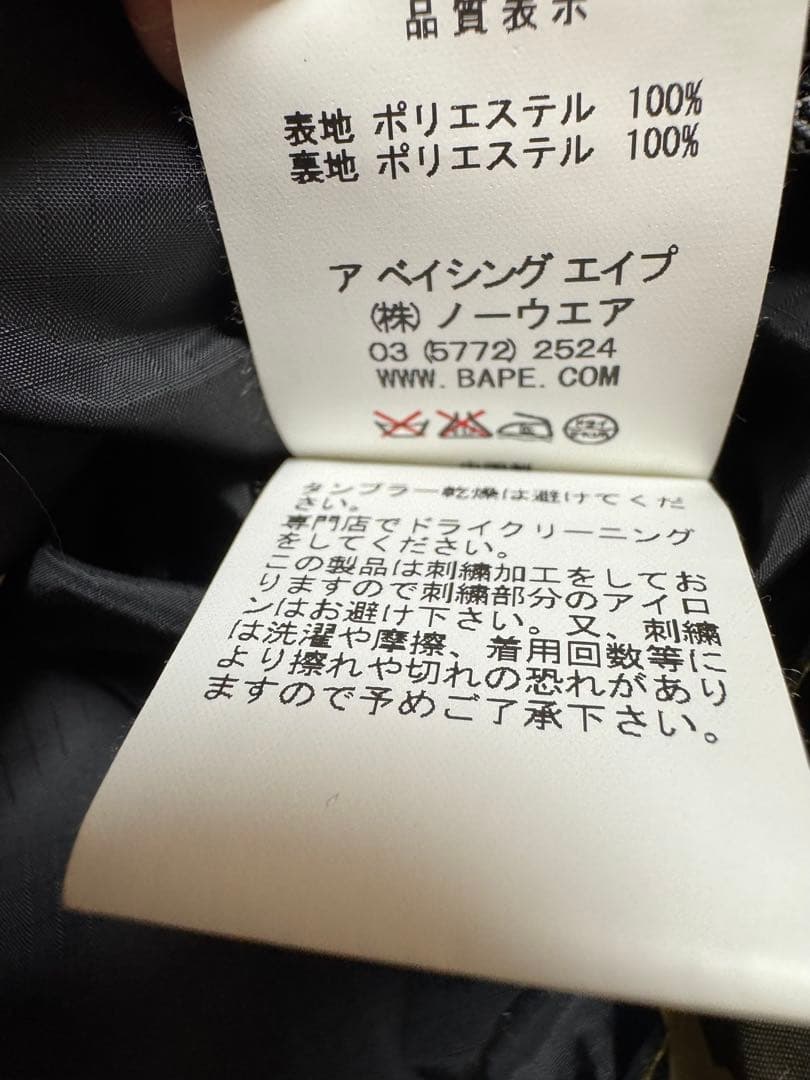 品質表示
表地 ポリエステル 100%
裏地 ポリエステル 100%
ア ベイシング エイプ
(株) ノーウエア
03 (5772) 2524
WWW. BAPE. COM
タンブラー乾燥は避けてくだ
さい。
専門店でドライクリーニング
をしてください。
この製品は刺繍加工をしてお
りますので刺繍部分のアイロ
ンはお避け下さい。又、刺繍
は洗濯や摩擦、着用回数等に
より擦れや切れの恐れがあり
ますので予めご了承下さい。